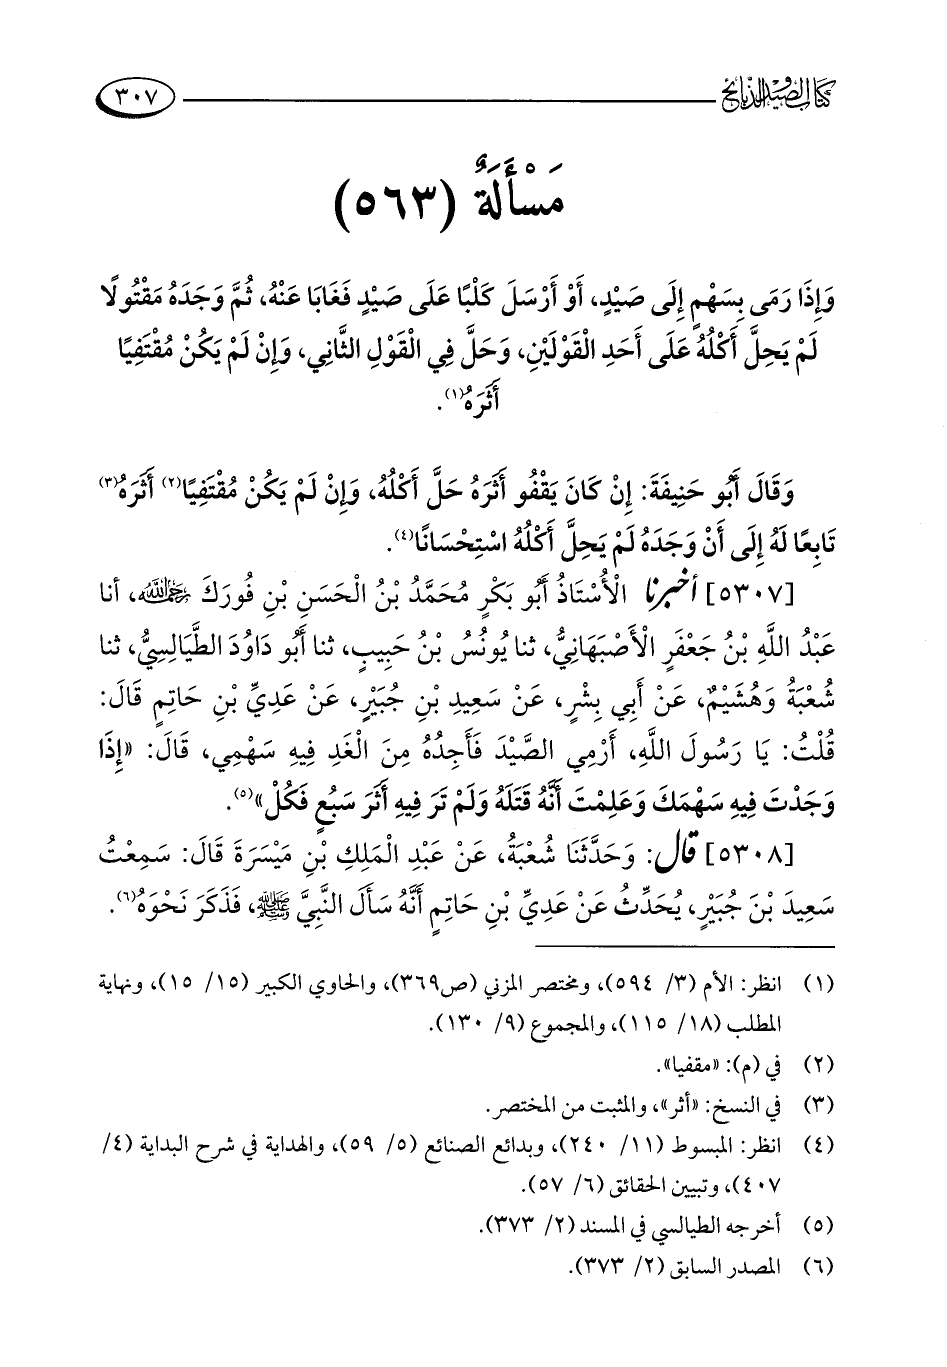 كتاب الصيد والذبائح ٣٠٧
مَسْأَلَةٌ (٥٦٣)
وَإِذَا رَمَى بِسَهْمٍ إِلَى صَيْدٍ، أَوْ أَرْسَلَ كَلْبًا عَلَى صَيْدٍ فَغَابَا عَنْهُ، ثُمَّ وَجَدَهُ مَقْتُولًا
لَمْ يَحِلَّ أَكْلُهُ عَلَى أَحَدِ الْقَوْلَيْنِ، وَحَلَّ فِي الْقَوْلِ الثَّانِي، وَإِنْ لَمْ يَكُنْ مُقْتَفِيًا
أَثَرَهُ(١).
وَقَالَ أَبُو حَنِيفَةَ: إِنْ كَانَ يَقْفُو أَثَرَهُ حَلَّ أَكْلُهُ، وَإِنْ لَمْ يَكُنْ مُقْتَفِيًا(٢) أَثَرَهُ(٣)
تَابِعًا لَهُ إِلَى أَنْ وَجَدَهُ لَمْ يَحِلَّ أَكْلُهُ اسْتِحْسَانًا(٤).
[٥٣٠٧] أخبرنا الْأُسْتَاذُ أَبُو بَكْرٍ مُحَمَّدُ بْنُ الْحَسَنِ بْنِ فُورَكَ رَحِمَهُ اللَّهُ، أنا
عَبْدُ اللَّهِ بْنُ جَعْفَرٍ الْأَصْبَهَانِيُّ، ثنا يُونُسُ بْنُ حَبِيبٍ، ثنا أَبُو دَاوُدَ الطَّيَالِسِيُّ، ثنا
شُعْبَةُ وَهُشَيْمٌ، عَنْ أَبِي بِشْرٍ، عَنْ سَعِيدِ بْنِ جُبَيْرٍ، عَنْ عَدِيِّ بْنِ حَاتِمٍ قَالَ:
قُلْتُ: يَا رَسُولَ اللَّهِ، أَرْمِي الصَّيْدَ فَأَجِدُهُ مِنَ الْغَدِ فِيهِ سَهْمِي، قَالَ: «إِذَا
وَجَدْتَ فِيهِ سَهْمَكَ وَعَلِمْتَ أَنَّهُ قَتَلَهُ وَلَمْ تَرَ فِيهِ أَثَرَ سَبُعٍ فَكُلْ»(٥).
[٥٣٠٨] قال: وَحَدَّثَنَا شُعْبَةُ، عَنْ عَبْدِ الْمَلِكِ بْنِ مَيْسَرَةَ قَالَ: سَمِعْتُ
سَعِيدَ بْنَ جُبَيْرٍ، يُحَدِّثُ عَنْ عَدِيِّ بْنِ حَاتِمٍ أَنَّهُ سَأَلَ النَّبِيَّ ﷺ، فَذَكَرَ نَحْوَهُ(٦).
(١) انظر: الأم (٣/ ٥٩٤)، ومختصر المزني (ص٣٦٩)، والحاوي الكبير (١٥/ ١٥)، ونهاية
المطلب (١٨/ ١١٥)، والمجموع (٩/ ١٣٠).
(٢) في (م): «مقفيا».
(٣) في النسخ: «أثر»، والمثبت من المختصر.
(٤) انظر: المبسوط (١١/ ٢٤٠)، وبدائع الصنائع (٥/ ٥٩)، والهداية في شرح البداية (٤/
٤٠٧)، وتبيين الحقائق (٦/ ٥٧).
(٥) أخرجه الطيالسي في المسند (٢/ ٣٧٣).
(٦) المصدر السابق (٢/ ٣٧٣).